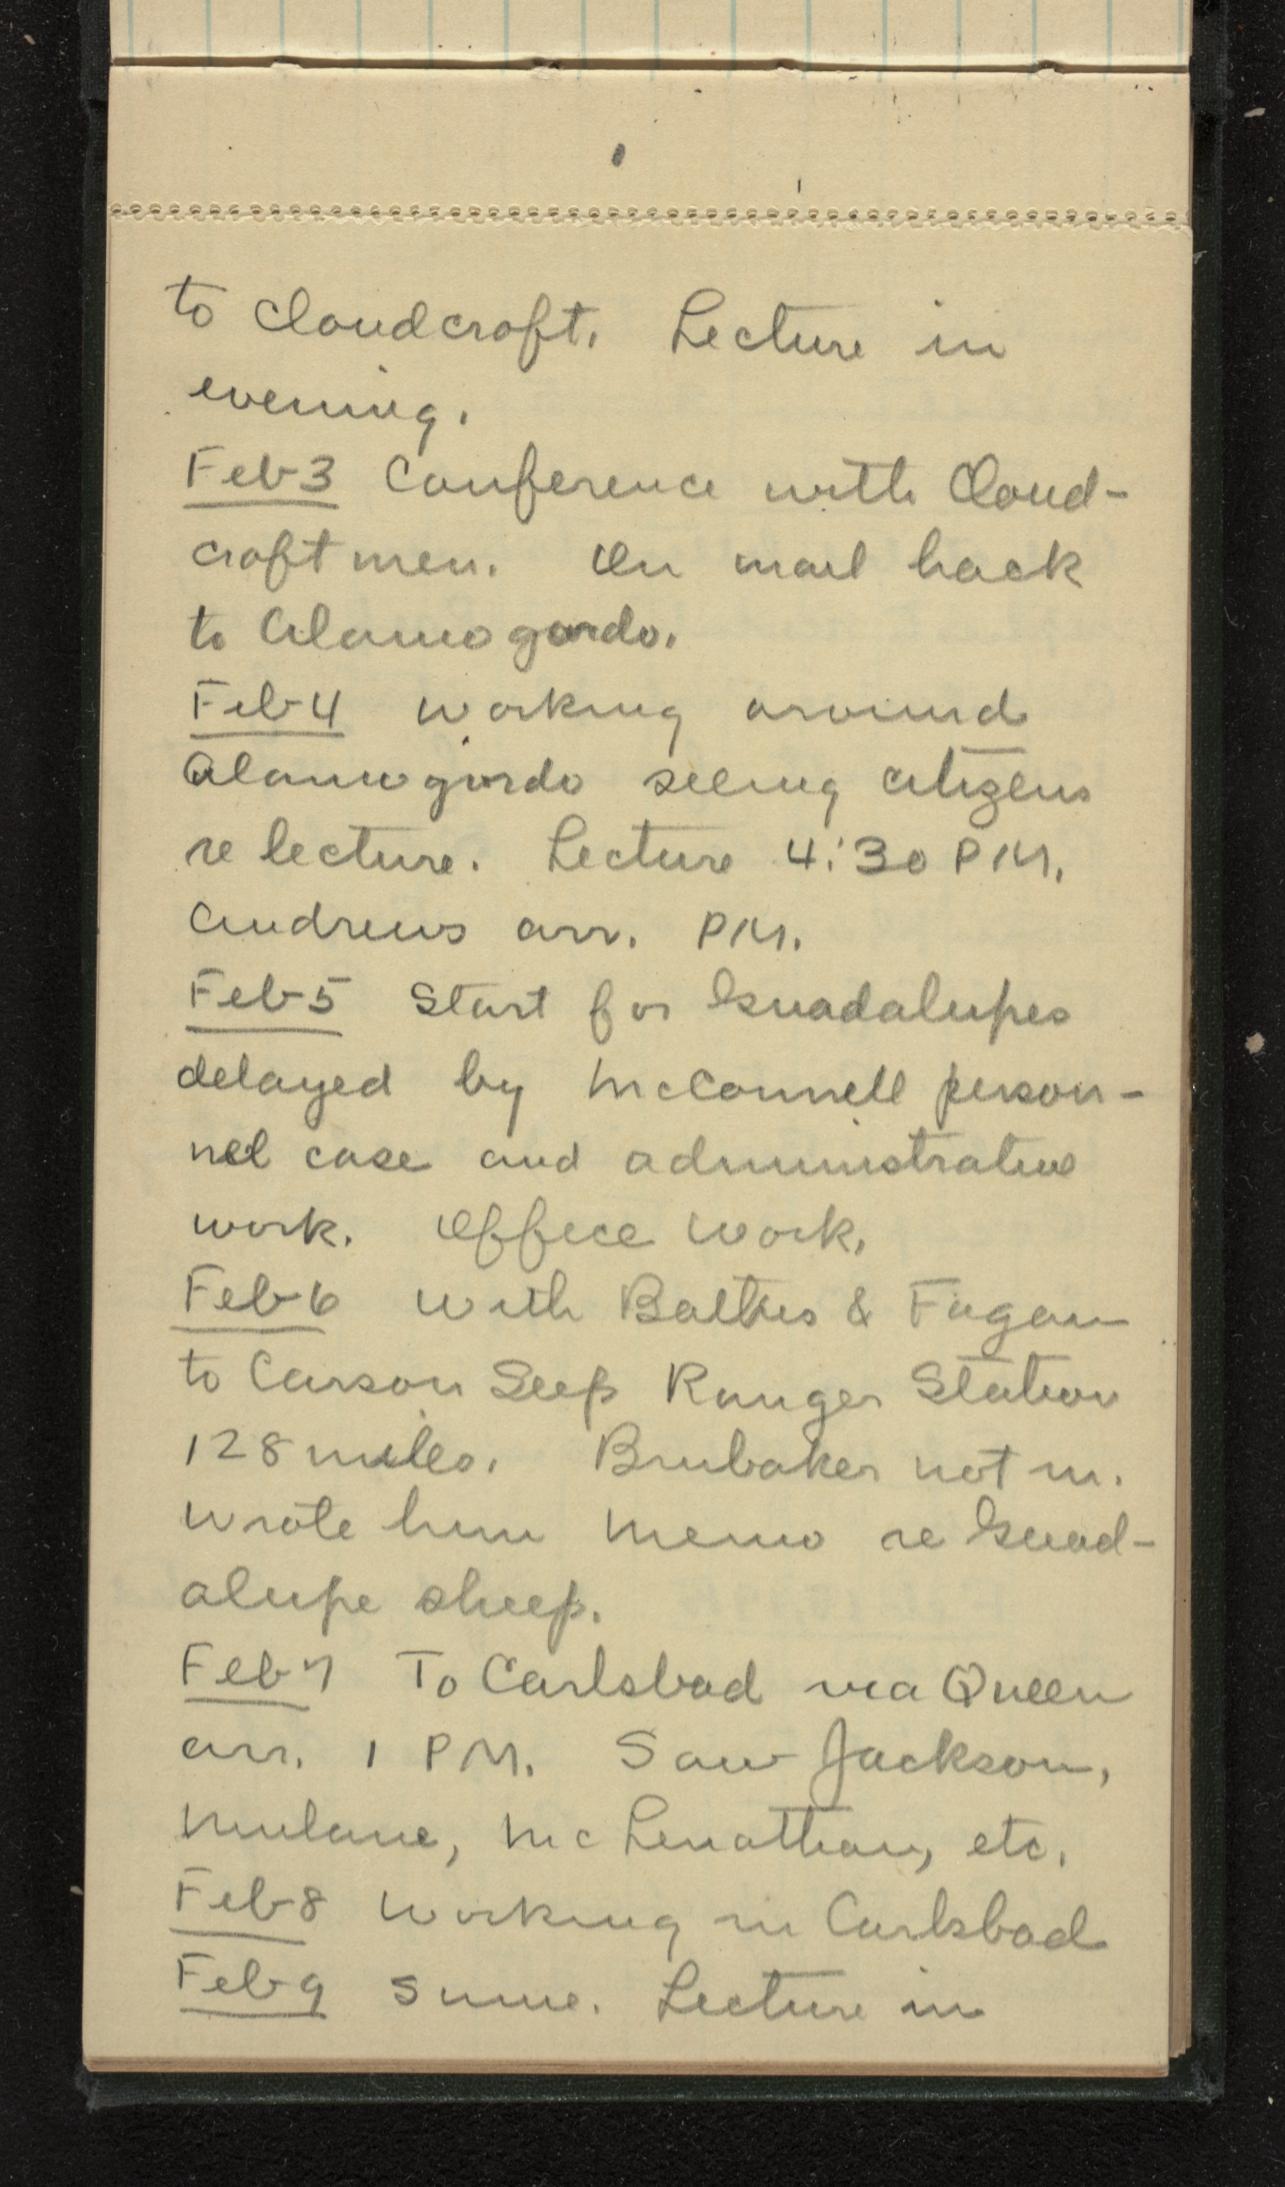 to Cloudcroft. Lecture in
evening.
Feb 3 Conference with Cloud-
croft men. On mail hack
to Alamogordo.
Feb 4 Working around
Alamogordo seeing citizens
re lecture. Lecture 4:30 PM.
Andrews arr. PM.
Feb 5 Start for Guadalupes
delayed by McConnell person-
nel case and administrative
work. Office work.
Feb 6 With & 
to Carson Seep Ranger Station
128 miles. Brubaker not in.
Wrote him memo re Guad-
alupe sheep.
Feb 7 To Carlsbad via Queen
arr. 1 PM. Saw Jackson,
Mulane, McLenathan, etc.
Feb 8 Working in Carlsbad
Feb 9 Same. Lecture in